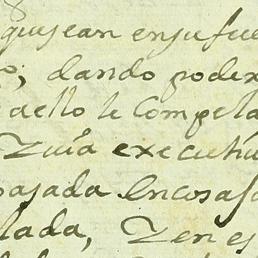 quisean ensufue
o, dando poder
dello le Compela
Zuia executiu
pasada Encosa
lada, Zenes